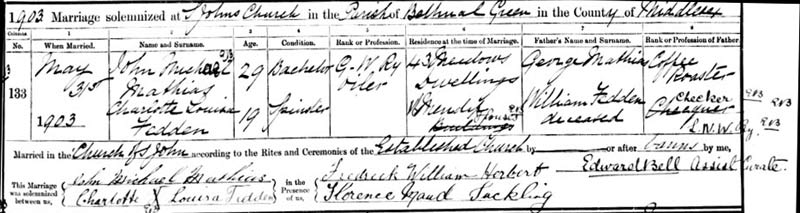 1903 Marriage solemnized at St Johns Church in the Parish of Bethnal Green in the County of Middlesex
Columns
No.
When Married.
Name and Surname.
Age.
Condition.
Rank or Profession.
Residence at the time of Marriage.
Father's Name and Surname.
Rank or Profession of Father.
133
May 31st 1903
John Michael Mathias
29
Bachelor
G. W. Ry Oiler
43 Meadows Dwellings
George Mathias
Coffee Roaster
Charlotte Louisa Fedden
19
Spinster
Mendip House Buildings
William Fedden deceased
Checker Chequer L.N.W. Ry.
Married in the Church of St John according to the Rites and Ceremonies of the Established Church by or after banns by me,
Edward Bell Assist Curate.
This Marriage was solemnized between us,
John Michael Mathias
Charlotte X Louisa Fedden
in the Presence of us,
Fredrick William Herbert
Florence Maud Suckling